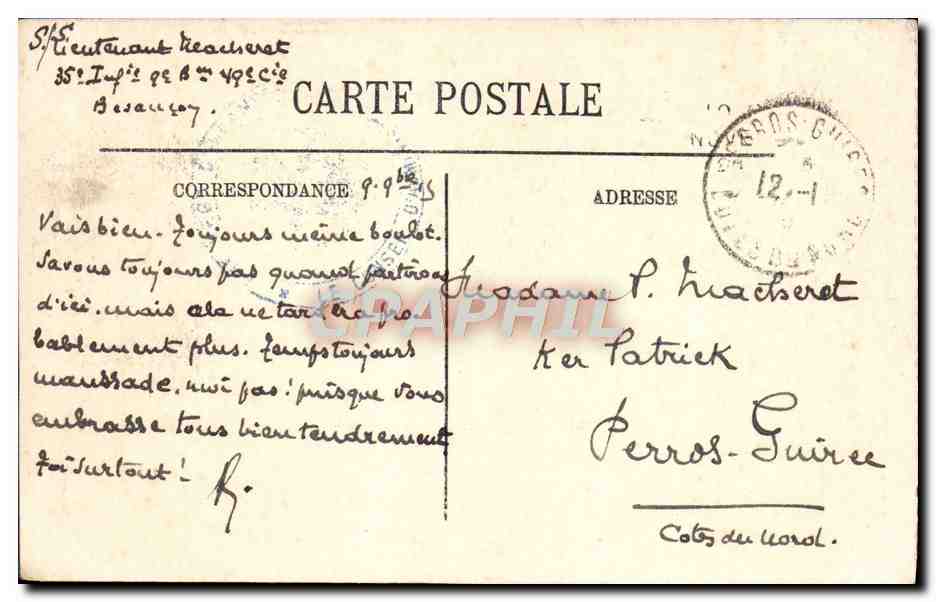 S/S.
Lieutenant Macheret
35e Infie 9e Bon 49e Cie
Besançon.
CARTE POSTALE
CORRESPONDANCE
9. 9bre 15
Vais bien. Toujours même boulot.
Savons toujours pas quand partirons
d'ici. mais cela ne tardera pro-
bablement plus. Temps toujours
maussade. moi pas! puisque vous
embrasse tous bien tendrement
Toi surtout!
R.
ADRESSE
PERROS-GUIREC
12
CÔTES DU NORD
Madame P. Macheret
Ker Patrick
Perros-Guirec
Cotes du Nord.
CPAPHIL